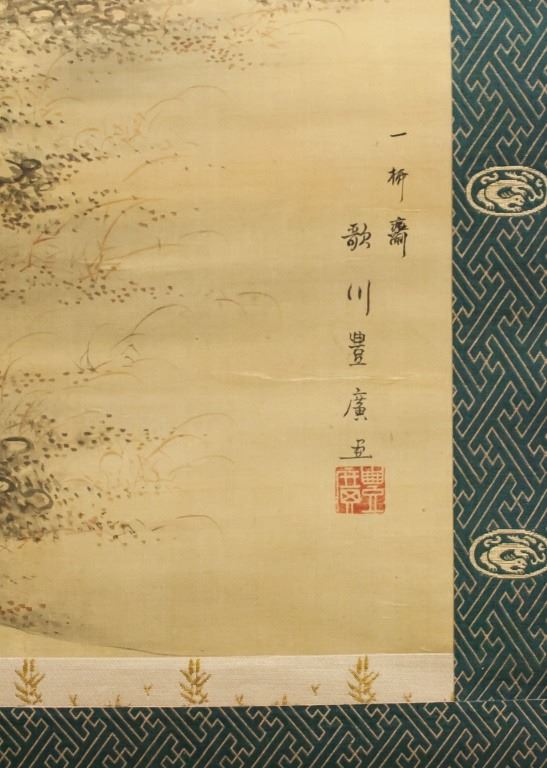 一柳齋
歌川豊廣画
豊廣